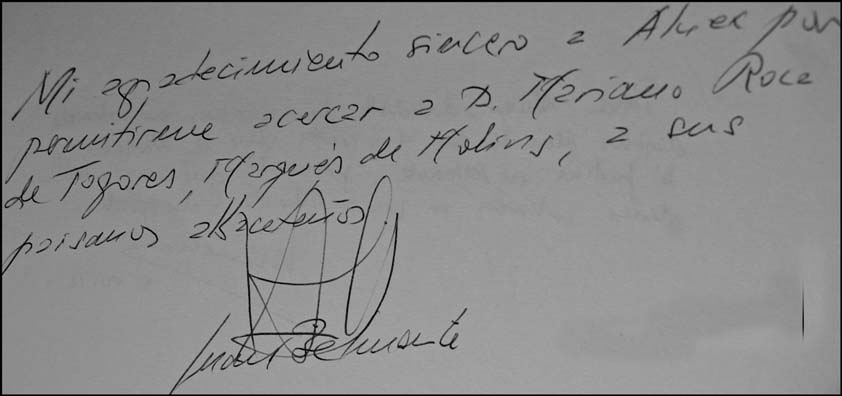 Mi agradecimiento sincero a por
permitirme acercar a D. Mariano Roca
de Togores, Marqués de Molins, a sus
paisanos albaceteños.
Belmonte